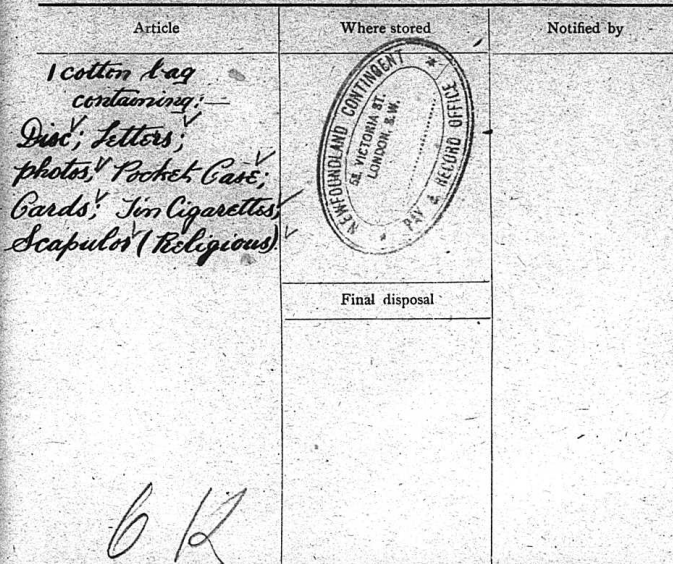 Article
Where stored
Notified by
1 cotton bag
containing:—
Disc; Letters;
photos; Pocket Case;
Cards; Tin Cigarettes;
Scapulos (Religious).
NEWFOUNDLAND CONTINGENT
58, VICTORIA ST.
LONDON, S.W.
PAY & RECORD OFFICE
Final disposal